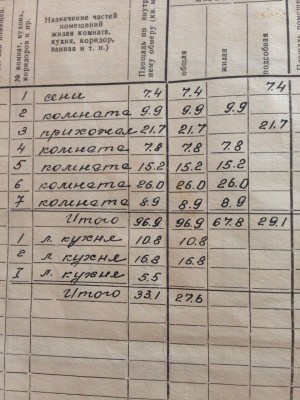 № комнат, кухонь, коридоров и пр.
Назначение частей помещений жилая комната, кухня, коридор, ванная и т. п.)
Площадь по внутр нему обмеру (кв. м
общая
жилая
подсобная
1 сени 7.4 7.4 7.4
2 комната 9.9 9.9 9.9
3 прихожая 21.7 21.7 21.7
4 комната 7.8 7.8 7.8
5 комната 15.2 15.2 15.2
6 комната 26.0 26.0 26.0
7 комната 8.9 8.9 8.9
Итого 96.9 96.9 67.8 29.1
1 л. кухня 10.8 10.8
2 л. кухня 16.8 16.8
I л. кухня 5.5
Итого 33.1 27.6